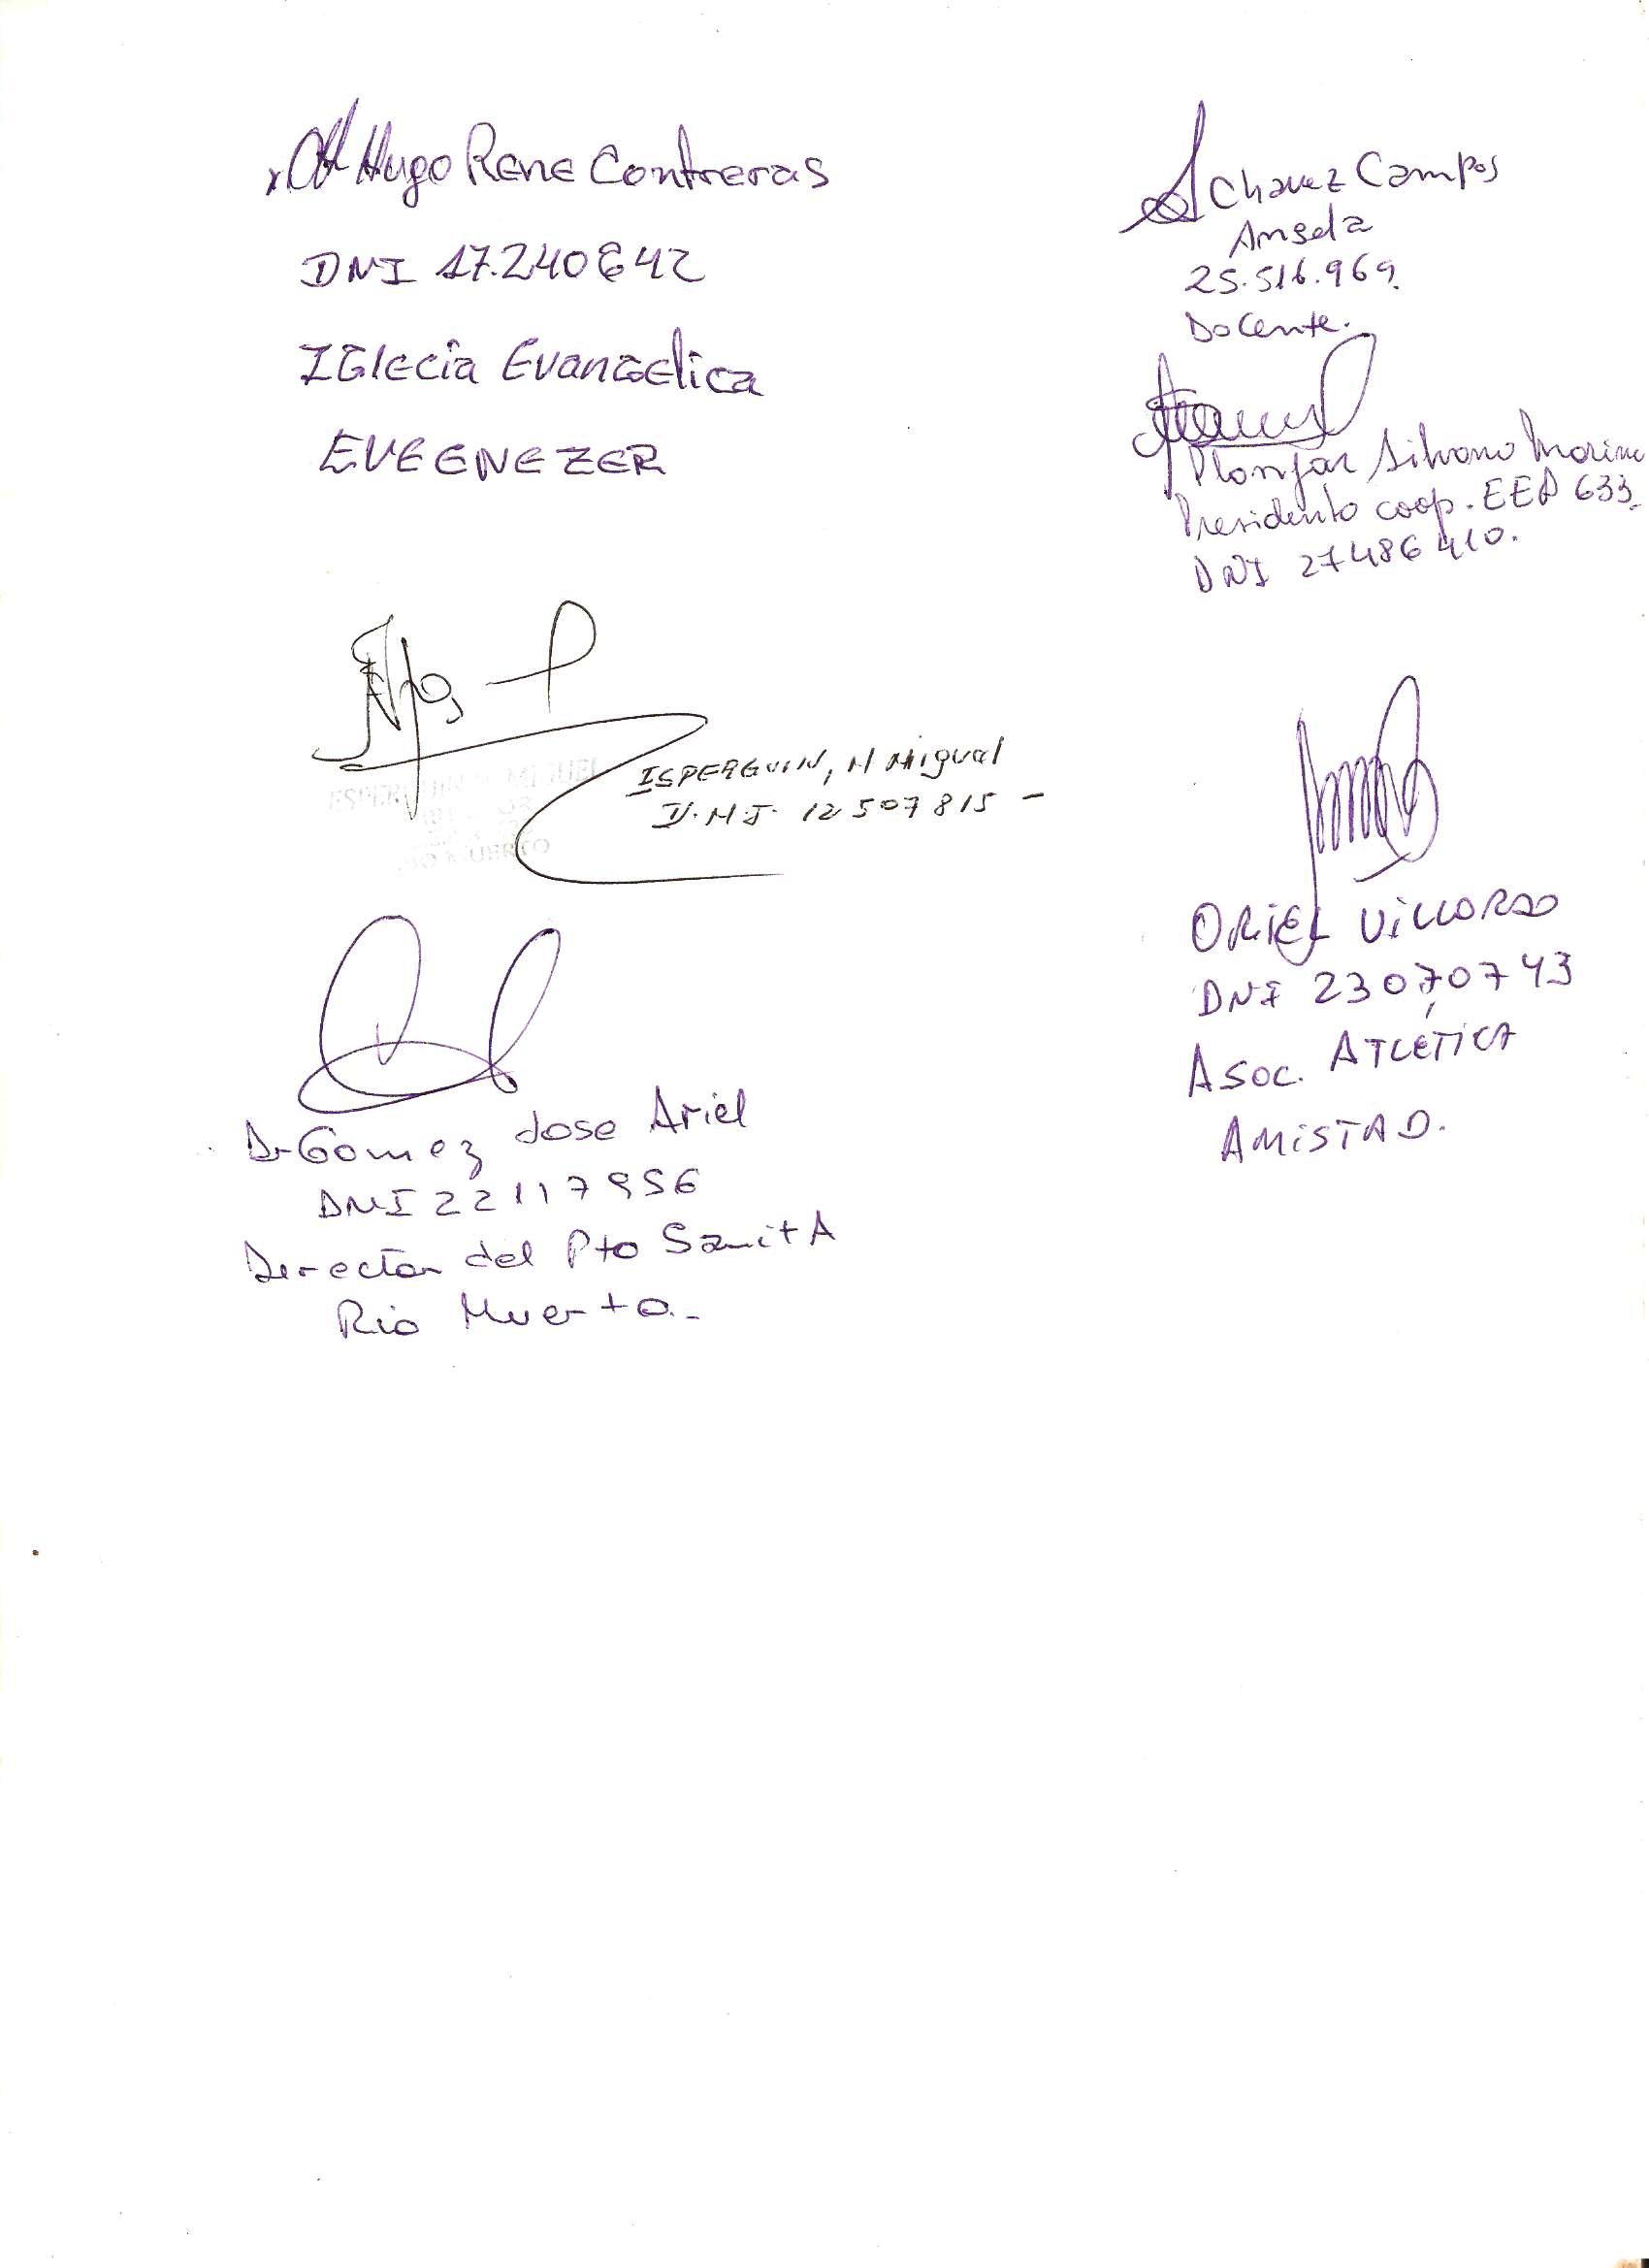 Hugo Rene Contreras
DNI 17.240642
IGlecia Evangelica
EVEENEZER
Chavez Campos
Angela
25.516.969.
Docente.
Silvano
Presidente coop. EEP 633.
DNI 27486410.
ISPERGUIN, H Miguel
D.N.I. 12507815 -
ORIEL VILLORDO
DNI 23070743
ASOC. ATLÉTICA
AMISTAD.
Dr Gomez Jose Ariel
DNI 22117956
Director del Pto Sanit A
Rio Muerto.-